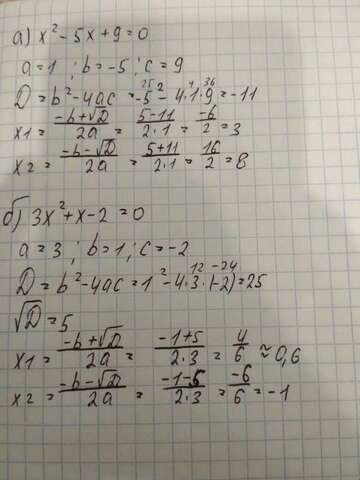 а) x² - 5x + 9 = 0
a = 1 ; b = -5 ; c = 9
D = b² - 4ac = -5² - 4·1·9 = -11
25 4 36
x1 = (-b + √D)/2a = (5-11)/(2·1) = -6/2 = 3
x2 = (-b - √D)/2a = (5+11)/(2·1) = 16/2 = 8
б) 3x² + x - 2 = 0
a = 3 ; b = 1 ; c = -2
D = b² - 4ac = 1² - 4·3·(-2) = 25
12 -24
√D = 5
x1 = (-b + √D)/2a = (-1+5)/(2·3) = 4/6 ≈ 0,6
x2 = (-b - √D)/2a = (-1-5)/(2·3) = -6/6 = -1